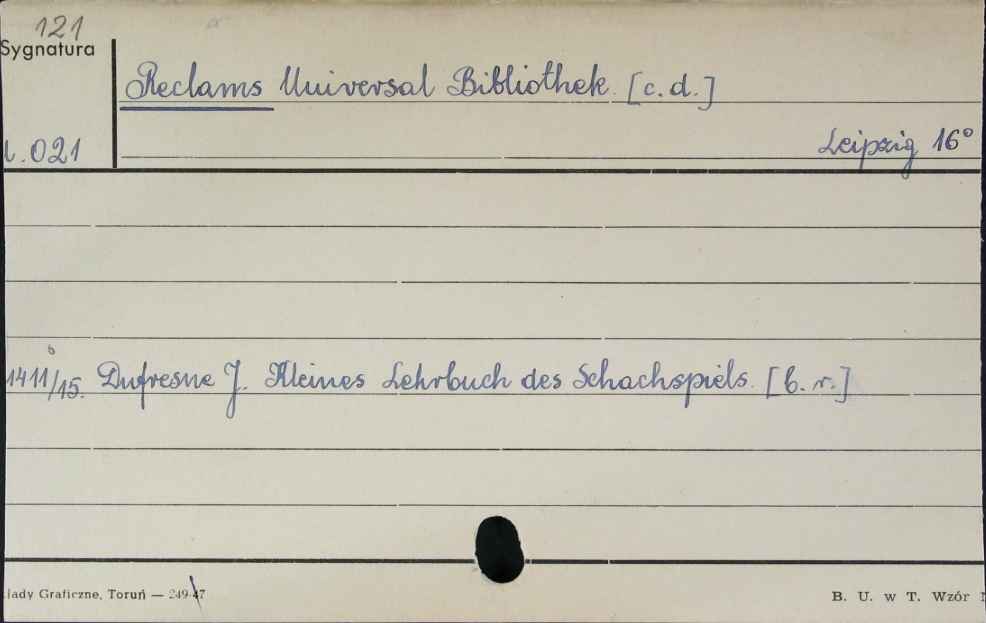 121
Sygnatura
Reclams Universal Bibliothek. [c.d.]
l.021
Leipzig 16°
1411/15. Dufresne J. Kleines Lehrbuch des Schachspiels. [b.r.]
łady Graficzne, Toruń — 249-47
B. U. w T. Wzór